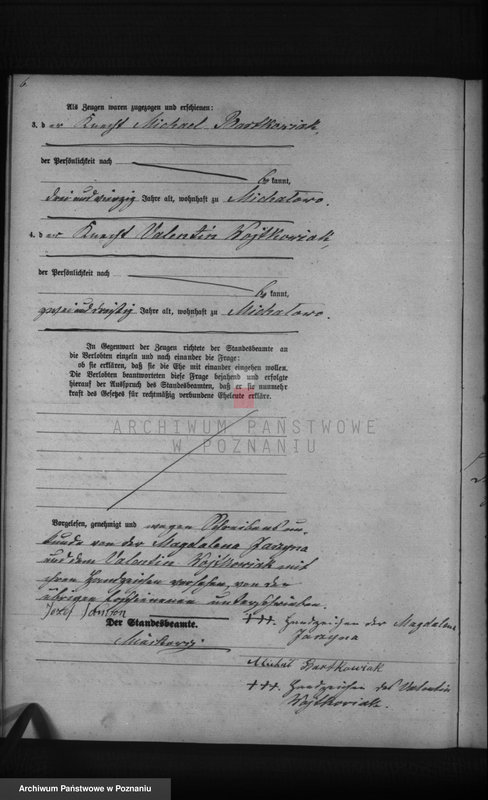 6.
Als Zeugen waren zugezogen und erschienen:
3. der Knecht Michael Bartkowiak,
der Persönlichkeit nach
bekannt,
drei und vierzig Jahre alt, wohnhaft zu Michalowo.
4. der Knecht Valentin Wojtkowiak,
der Persönlichkeit nach
bekannt,
zwei und dreißig Jahre alt, wohnhaft zu Michalowo.
In Gegenwart der Zeugen richtete der Standesbeamte an
die Verlobten einzeln und nach einander die Frage:
ob sie erklären, daß sie die Ehe mit einander eingehen wollen.
Die Verlobten beantworteten diese Frage bejahend und erfolgte
hierauf der Ausspruch des Standesbeamten, daß er sie nunmehr
kraft des Gesetzes für rechtmäßig verbundene Eheleute erkläre.
ARCHIWUM PAŃSTWOWE
W POZNANIU
Vorgelesen, genehmigt und wegen Schreibensun-
kunde von der Magdalena Jarzyna
und dem Valentin Wojtkowiak mit
ihren Handzeichen versehen, von den
übrigen Erschienenen unterschrieben.
Józef
+++. Handzeichen der Magdalena
Jarzyna
Der Standesbeamte.
Michał Bartkowiak
+++. Handzeichen des Valentin
Wojtkowiak.
Archiwum Państwowe w Poznaniu